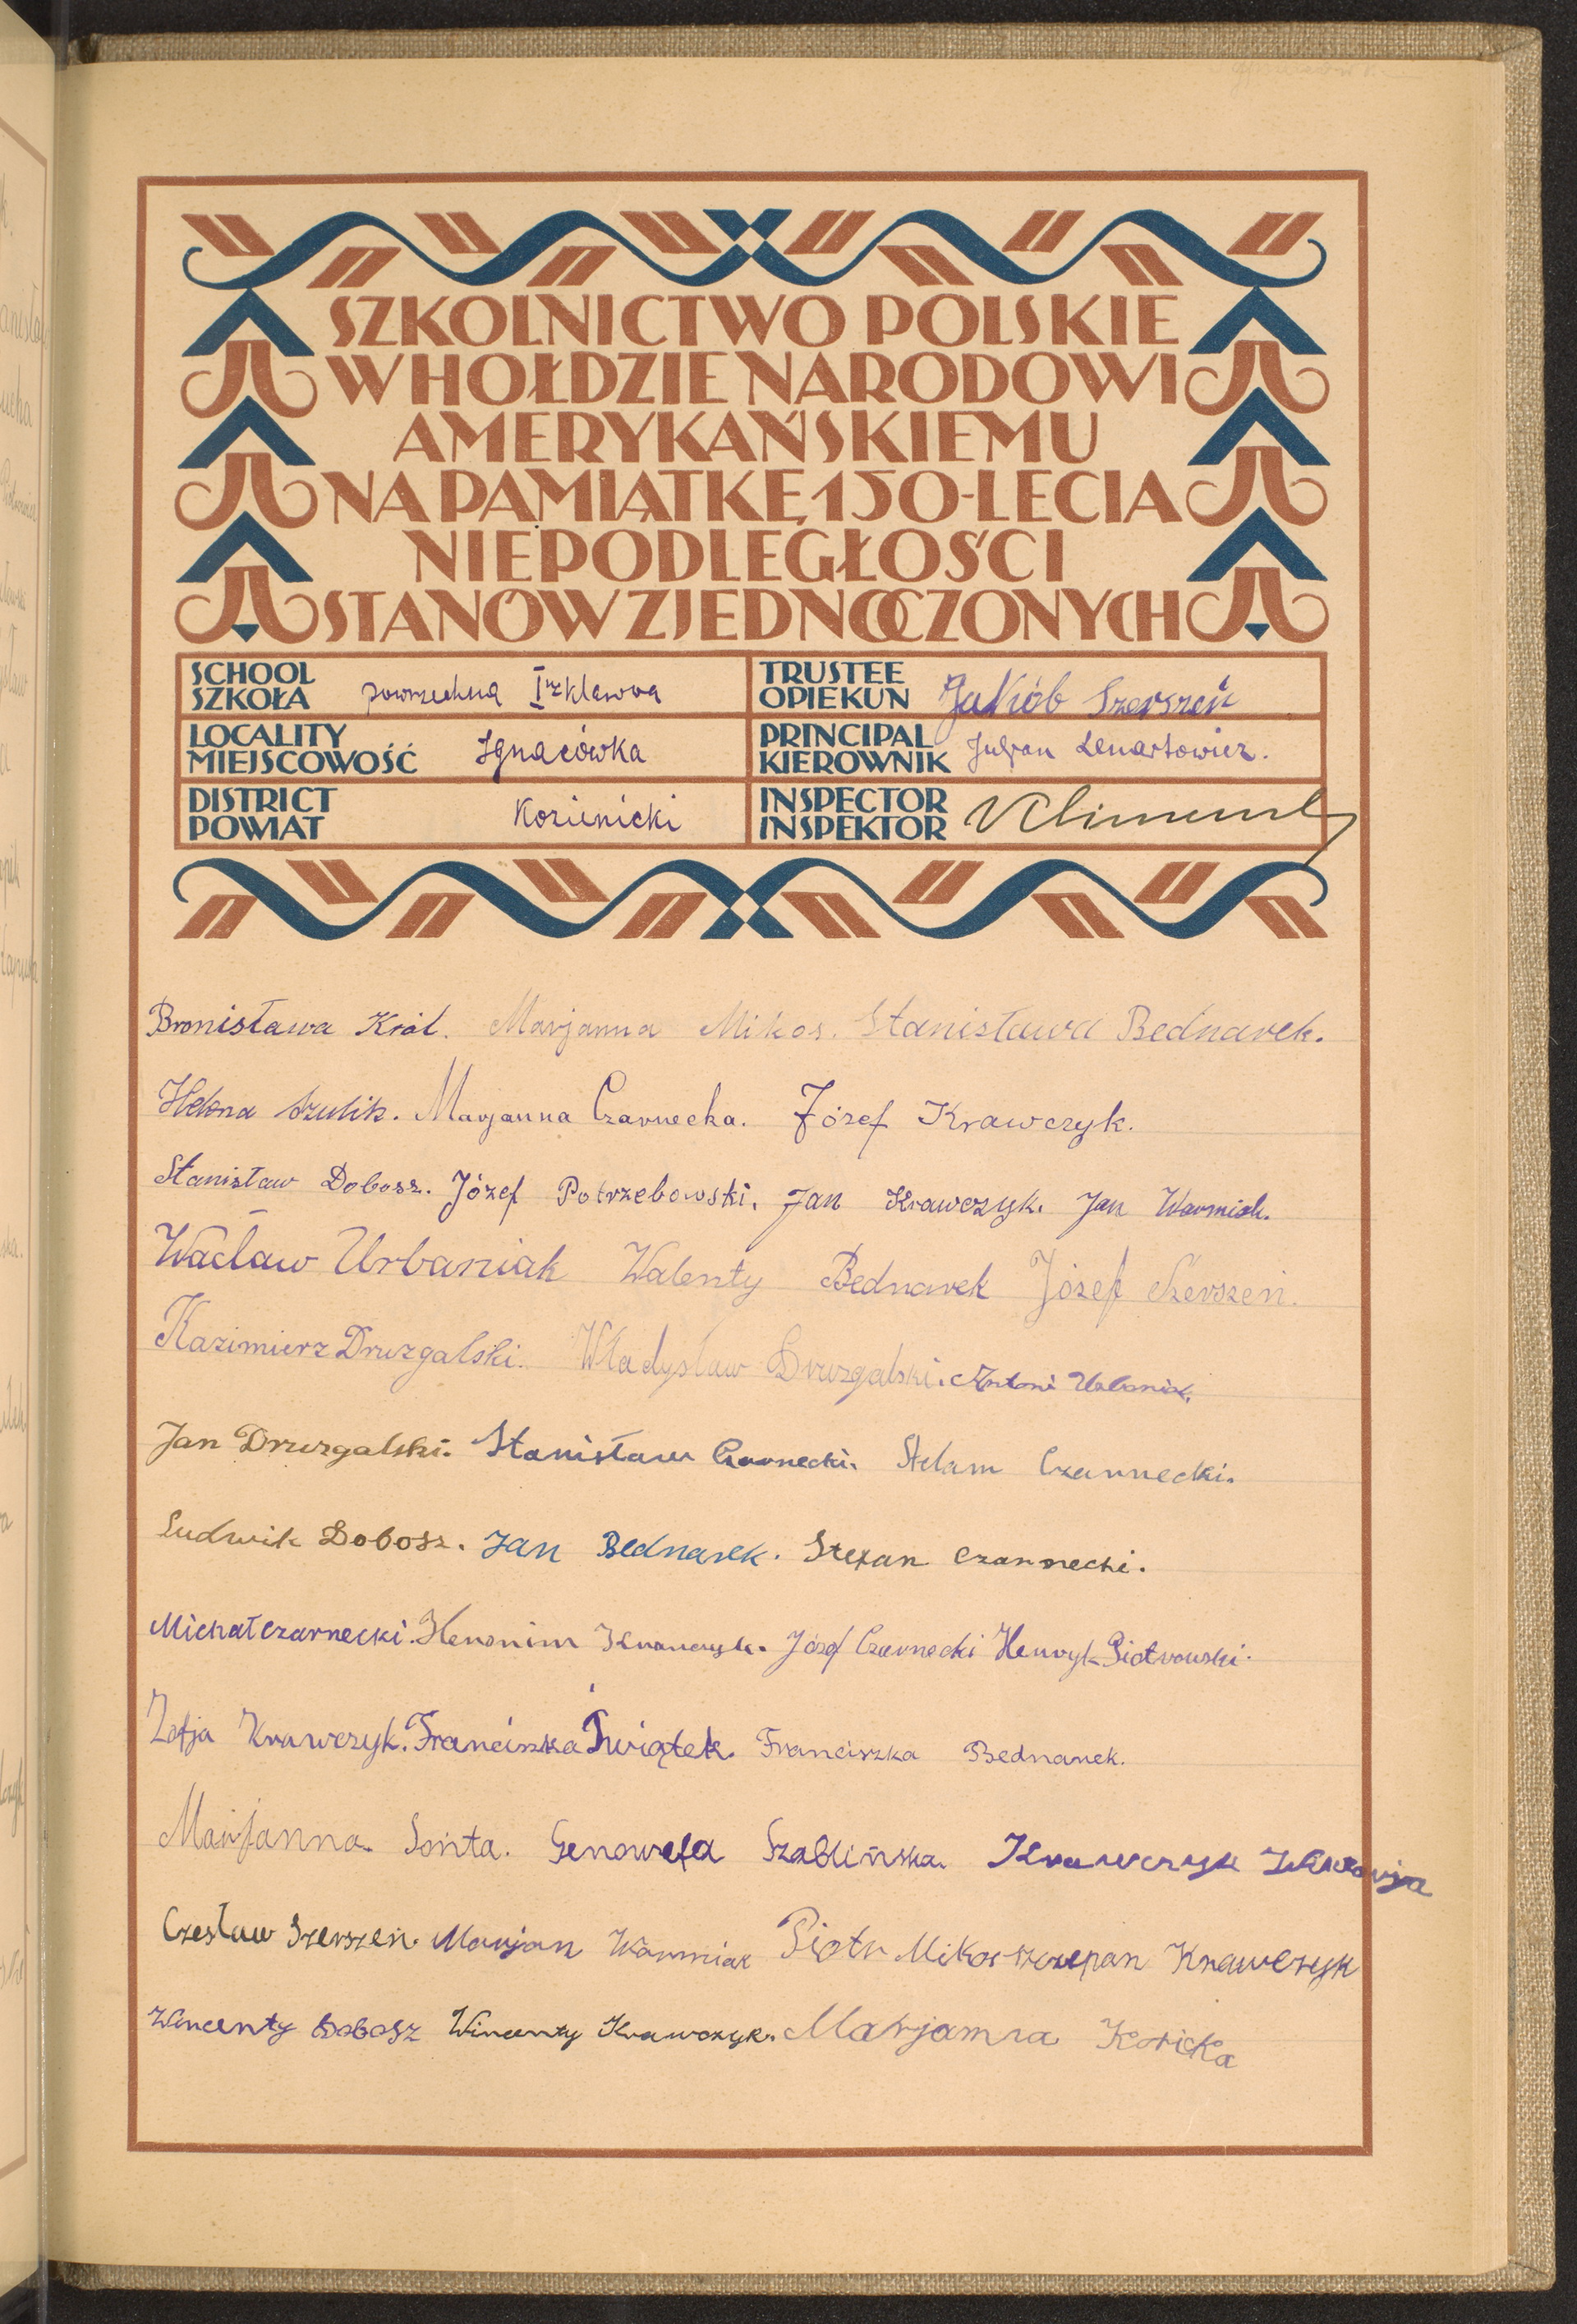 SZKOLNICTWO POLSKIE
W HOŁDZIE NARODOWI
AMERYKAŃSKIEMU
NA PAMIĄTKĘ 150-LECIA
NIEPODLEGŁOŚCI
STANÓW ZJEDNOCZONYCH
SCHOOL
SZKOŁA powszechna I klasowa
TRUSTEE
OPIEKUN Jakób Szerszeń
LOCALITY
MIEJSCOWOŚĆ Ignacówka
PRINCIPAL
KIEROWNIK Juljan Lenartowicz.
DISTRICT
POWIAT Kozienicki
INSPECTOR
INSPEKTOR
Bronisława Król. Marjanna Mikos. Stanisława Bednarek.
Helena Szulik. Marjanna Czarnecka. Józef Krawczyk.
Stanisław Dobosz. Józef Potrzebowski. Jan Krawczyk. Jan Warmiak.
Wacław Urbaniak Walenty Bednarek Józef Szerszeń.
Kazimierz Druzgalski. Władysław Druzgalski. Antoni Urbaniak.
Jan Druzgalski. Stanisław Czarnecki. Adam Czarnecki.
Ludwik Dobosz. Jan Bednarek. Stefan Czarnecki.
Michał Czarnecki. Heronim Krawczyk. Józef Czarnecki Henryk Piotrowski.
Zofja Krawczyk. Franciszka Świątek. Franciszka Bednarek.
Marjanna Sońta. Genowefa Szablińska. Krawczyk
Czesław Szerszeń. Marjan Warmiak Piotr Mikos Szczepan Krawczyk
Wincenty Dobosz Wincenty Krawczyk. Marjanna Kozicka